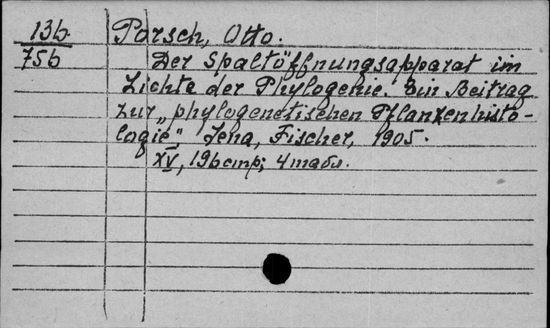 13b Porsch, Otto.
75b Der Spaltöffnungsapparat im
Lichte der Phylogenie. Ein Beitrag
zur „phylogenetischen Pflanzenhisto-
logie“ Jena, Fischer, 1905.
XV, 196 стр; 4 табл.